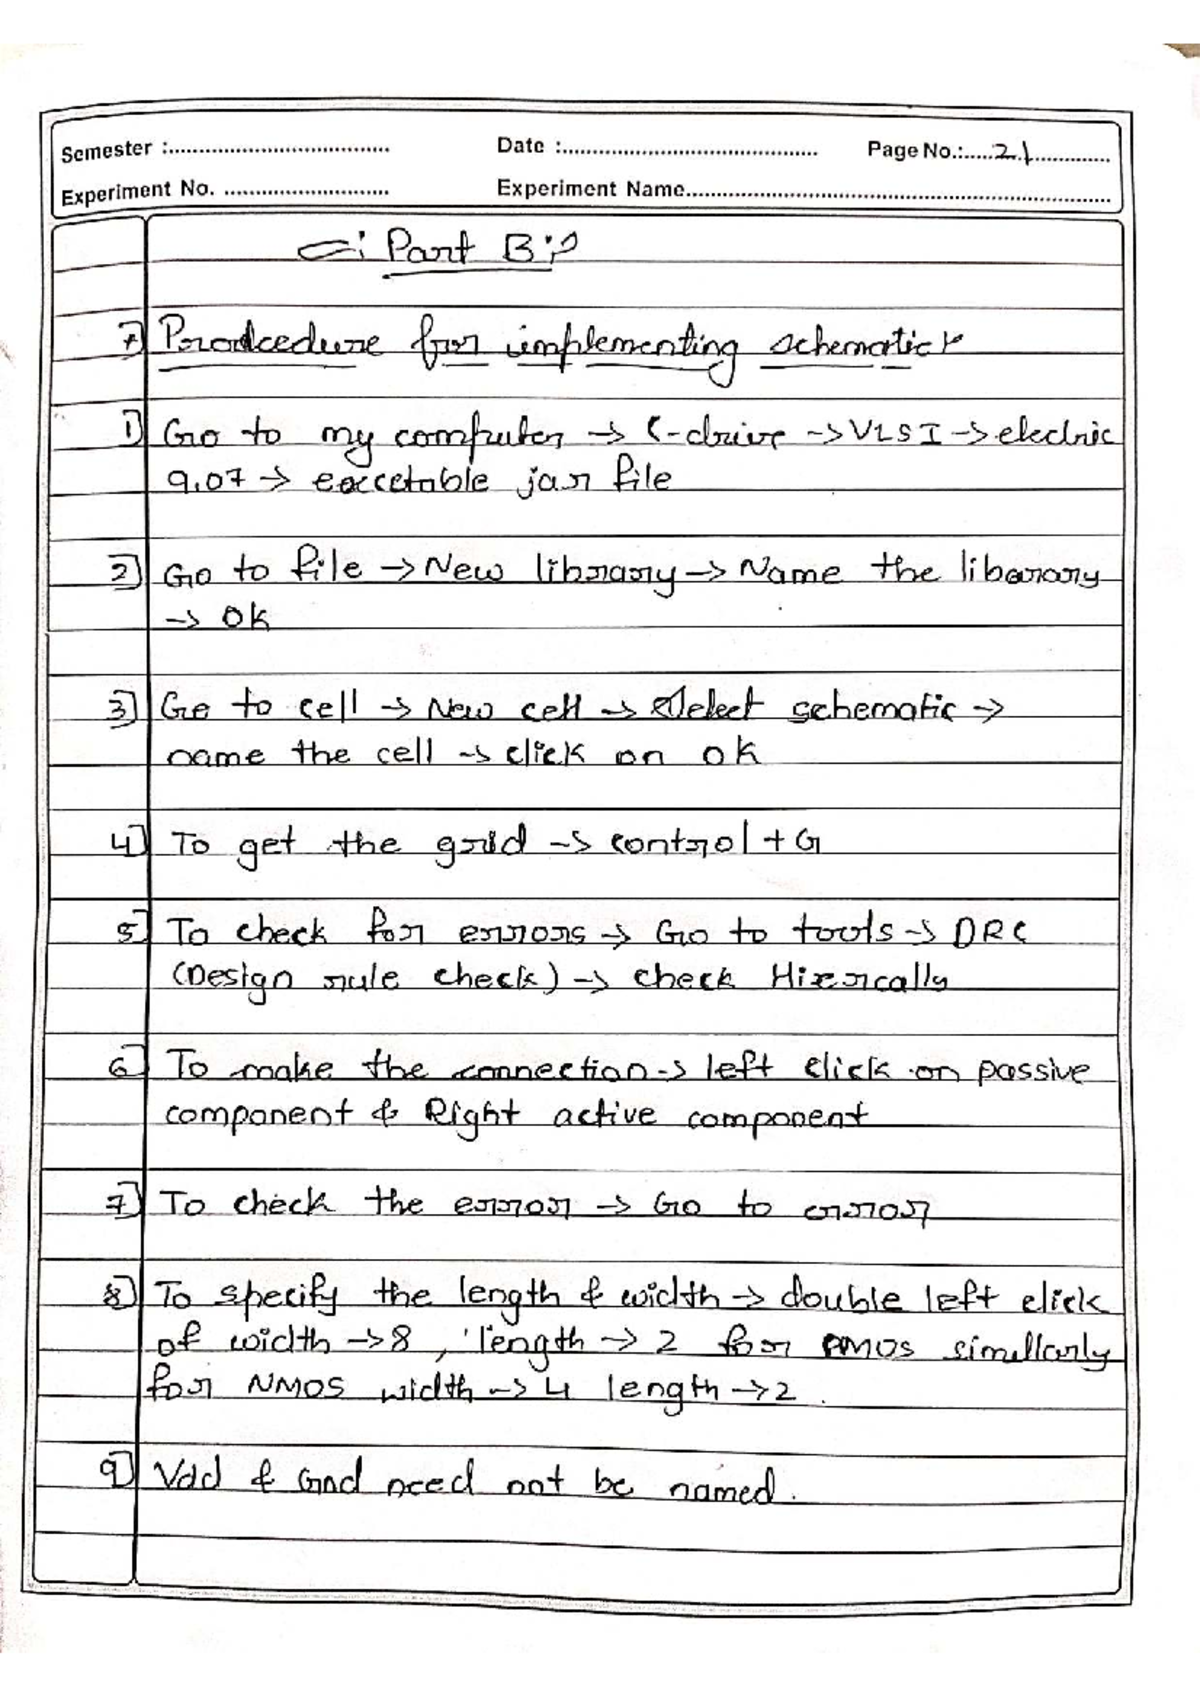 Semester :.................................. Date :....................................... Page No.:.....21.............
Experiment No. ......................... Experiment Name.................................................................
Part B
Prodcedure for implementing schematic
1) Go to my computer → C-drive → VLSI → electric
9.07 → exccetable jar file
2) Go to file → New library → Name the libarary
→ Ok
3) Go to cell → New cell → Select schematic →
name the cell → click on ok
4) To get the grid → control + G
5) To check for errors → Go to tools → DRC
(Design rule check) → check Hierrcally
6) To make the connection → left click on passive
component & Right active component
7) To check the error → Go to error
8) To specify the length & width → double left click
of width → 8 , length → 2 for PMOS simillarly
for NMOS width → 4 length → 2 .
9) Vdd & Gnd need not be named.